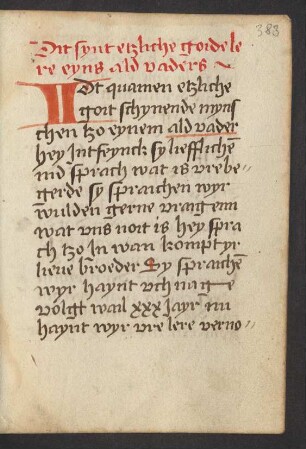 383
Dit synt etzliche goede le
re eyns ald vaders
It quamen etzliche
goit schynende myns
chen tzo eynem ald vader
hey intfeynck sy liefflichē
ind sprach wat is vre be=
gerde sy spraichen wyr
wulden gerne vragenn
wat vns noit is hey spra
ch tzo in wan kompt yr
lieue broeder Sy spraichē
wyr haynt vch na ge
volgt wail xxx jayr nu
haynt wyr vre lere verno=